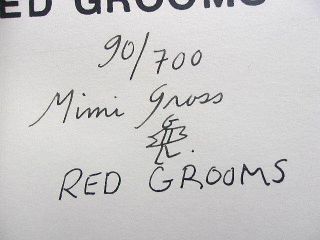 ED GROOMS
90/700
Mimi Gross
RED GROOMS